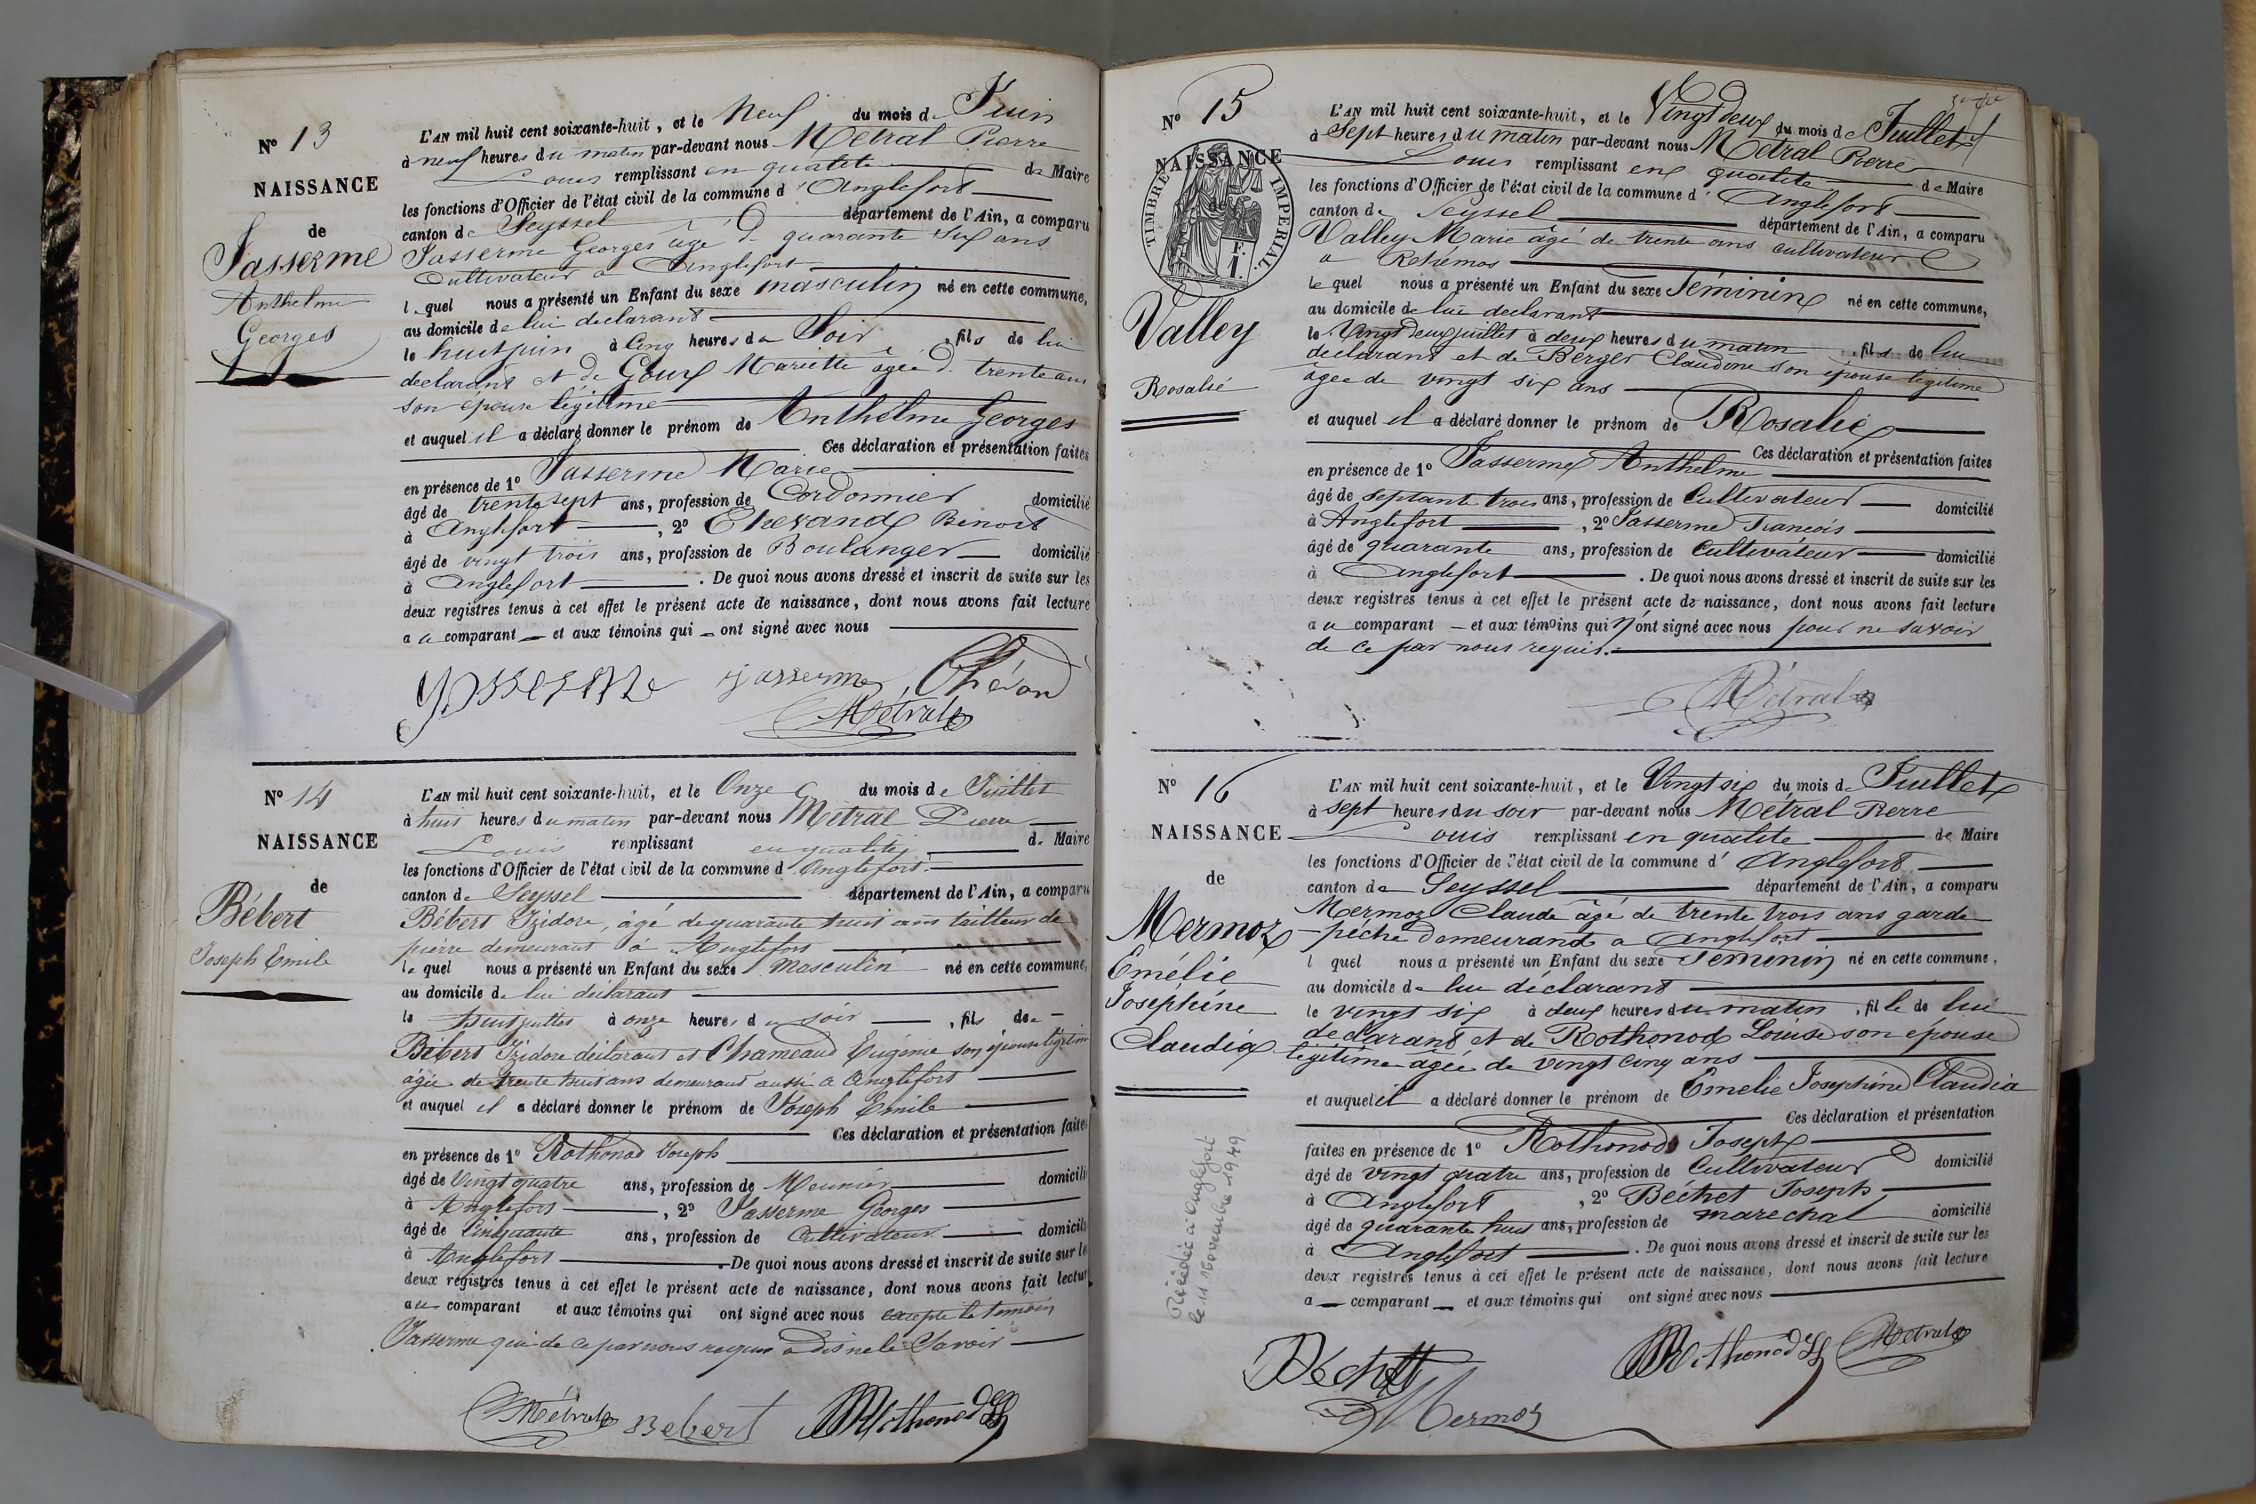 N° 13
NAISSANCE
de
Jasserme
Anthelme
Georges
L'AN mil huit cent soixante-huit, et le Neuf du mois de Juin
à neuf heures du matin par-devant nous Métral Pierre
Louis remplissant en qualité de Maire
les fonctions d'Officier de l'état civil de la commune d'Anglefort
canton de Seyssel département de l'Ain, a comparu
Jasserme Georges âgé de quarante six ans
Cultivateur a Anglefort
lequel nous a présenté un Enfant du sexe masculin né en cette commune,
au domicile de lui declarant
le huit juin à Cinq heures du Soir, fils de lui
declarant et de Goux Mariette agée de trente ans
son épouse légitime
et auquel il a déclaré donner le prénom de Anthelme Georges
Ces déclaration et présentation faites
en présence de 1° Jasserme Marie
âgé de trente sept ans, profession de Cordonnier domicilié
à Anglefort, 2° Chevand Benoit
âgé de vingt trois ans, profession de Boulanger domicilié
à Anglefort. De quoi nous avons dressé et inscrit de suite sur les
deux registres tenus à cet effet le présent acte de naissance, dont nous avons fait lecture
au comparant et aux témoins qui ont signé avec nous
jasserme Chévan
Métral
N° 14
NAISSANCE
de
Bébert
Joseph Emile
L'AN mil huit cent soixante-huit, et le Onze du mois de Juillet
à huit heures du matin par-devant nous Métral Pierre
Louis remplissant en qualité de Maire
les fonctions d'Officier de l'état civil de la commune d'Anglefort
canton de Seyssel département de l'Ain, a comparu
Bébert Izidore, âgé de quarante huit ans tailleur de
pierre demeurant à Anglefort
lequel nous a présenté un Enfant du sexe Masculin né en cette commune,
au domicile de lui déclarant
le huit juillet à onze heures du soir, fils de
Bébert Izidore déclarant et Chameaud Eugénie son épouse légitime
agée de trente huit ans demeurant aussi a Anglefort
et auquel il a déclaré donner le prénom de Joseph Emile
Ces déclaration et présentation faites
en présence de 1° Rothonod Joseph
âgé de Vingt quatre ans, profession de Meunier domicilié
à Anglefort, 2° Jasserme Georges
âgé de Cinquante ans, profession de Cultivateur domicilié
à Anglefort. De quoi nous avons dressé et inscrit de suite sur les
deux registres tenus à cet effet le présent acte de naissance, dont nous avons fait lecture
au comparant et aux témoins qui ont signé avec nous excepté le temoin
Jasserme qui de ce par nous requis a dis ne le Savoir
Métral Bebert Rothonod
N° 15
NAISSANCE
de
TIMBRE IMPERIAL
F.
1.
Valley
Rosalie
L'AN mil huit cent soixante-huit, et le Vingt deux du mois de Juillet
à Sept heures du matin par-devant nous Métral Pierre
Louis remplissant en qualité de Maire
les fonctions d'Officier de l'état civil de la commune d'Anglefort
canton de Seyssel département de l'Ain, a comparu
Valley Marie âgé de trente ans cultivateur
a
lequel nous a présenté un Enfant du sexe Féminin né en cette commune,
au domicile de lui declarant
le Vingt deux juillet à deux heures du matin, fils de lui
declarant et de Berger Claudine son épouse légitime
agée de vingt six ans
et auquel il a déclaré donner le prénom de Rosalie
Ces déclaration et présentation faites
en présence de 1° Jasserme Anthelme
âgé de septante trois ans, profession de Cultivateur domicilié
à Anglefort, 2° Jasserme François
âgé de quarante ans, profession de Cultivateur domicilié
à Anglefort. De quoi nous avons dressé et inscrit de suite sur les
deux registres tenus à cet effet le présent acte de naissance, dont nous avons fait lecture
au comparant et aux témoins qui n'ont signé avec nous pour ne savoir
de ce par nous requis.
Métral
N° 16
NAISSANCE
de
Mermoz
Emélie
Joséphine
Claudia
Décédée à Anglefort
le 11 Novembre 1949
L'AN mil huit cent soixante-huit, et le Vingt six du mois de Juillet
à sept heures du soir par-devant nous Métral Pierre
Louis remplissant en qualité de Maire
les fonctions d'Officier de l'état civil de la commune d'Anglefort
canton de Seyssel département de l'Ain, a comparu
Mermoz Claude âgé de trente trois ans garde
pêche demeurand a Anglefort
lquel nous a présenté un Enfant du sexe Feminin né en cette commune,
au domicile de lui déclarant
le vingt six à deux heures du matin, fille de lui
declarant et de Rothonod Louise son epouse
légitime agée de vingt cinq ans
et auquel il a déclaré donner le prénom de Emelie Josephine Claudia
Ces déclaration et présentation
faites en présence de 1° Rothonod Joseph
âgé de vingt quatre ans, profession de Cultivateur domicilié
à Anglefort, 2° Béchet Joseph
âgé de quarante huit ans, profession de marechal domicilié
à Anglefort. De quoi nous avons dressé et inscrit de suite sur les
deux registres tenus à cet effet le présent acte de naissance, dont nous avons fait lecture
a comparant et aux témoins qui ont signé avec nous
Béchet Rothonod Métral
Mermoz